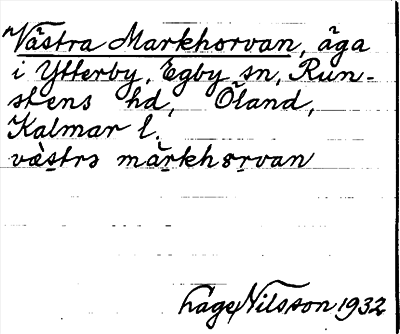 Västra Markhorvan, äga
i Ytterby, Egby sn, Run-
stens hd, Öland,
Kalmar l.
væ̀strs màrkhsrvan
Låge Nilsson 1932